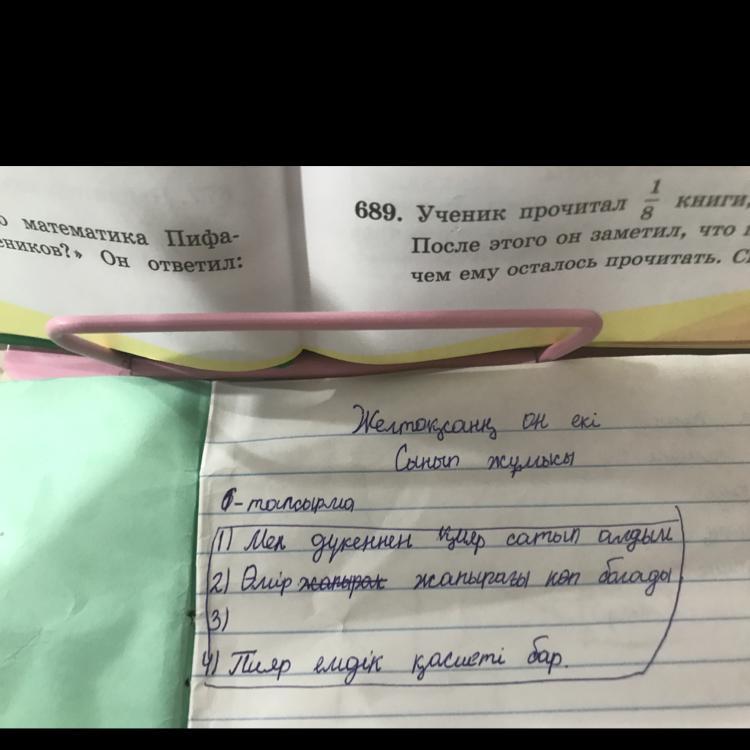 о математика Пифа-
еников?» Он ответил:
689. Ученик прочитал 1/8 книги,
После этого он заметил, что
чем ему осталось прочитать.
Желтоқсанң он екі
Сынып жұмысы
6-тапсырма
1) Мен дүкеннен қияр сатып алдым
2) Өмір жапырақ жапырағы көп болады
3)
4) Пияр емдік қасиеті бар.